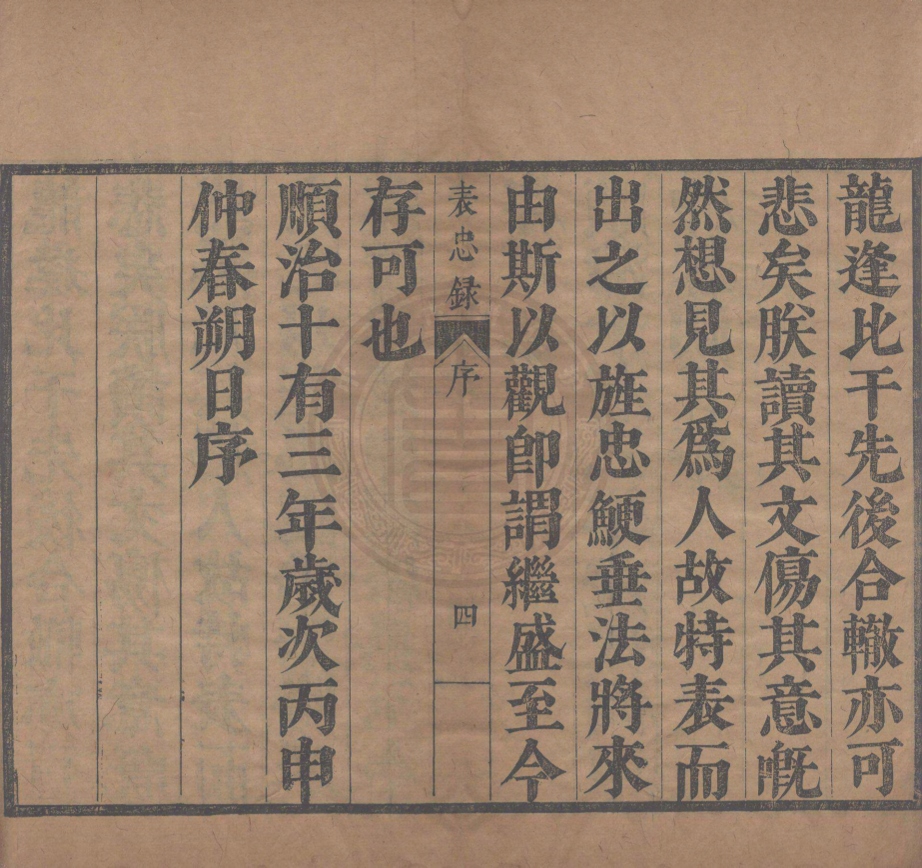 龍逢比干先後合轍亦可
悲矣朕讀其文傷其意嘅
然想見其爲人故特表而
出之以旌忠鯁垂法將來
由斯以觀卽謂繼盛至今
表忠録 序 四
存可也
順治十有三年歲次丙申
仲春朔日序